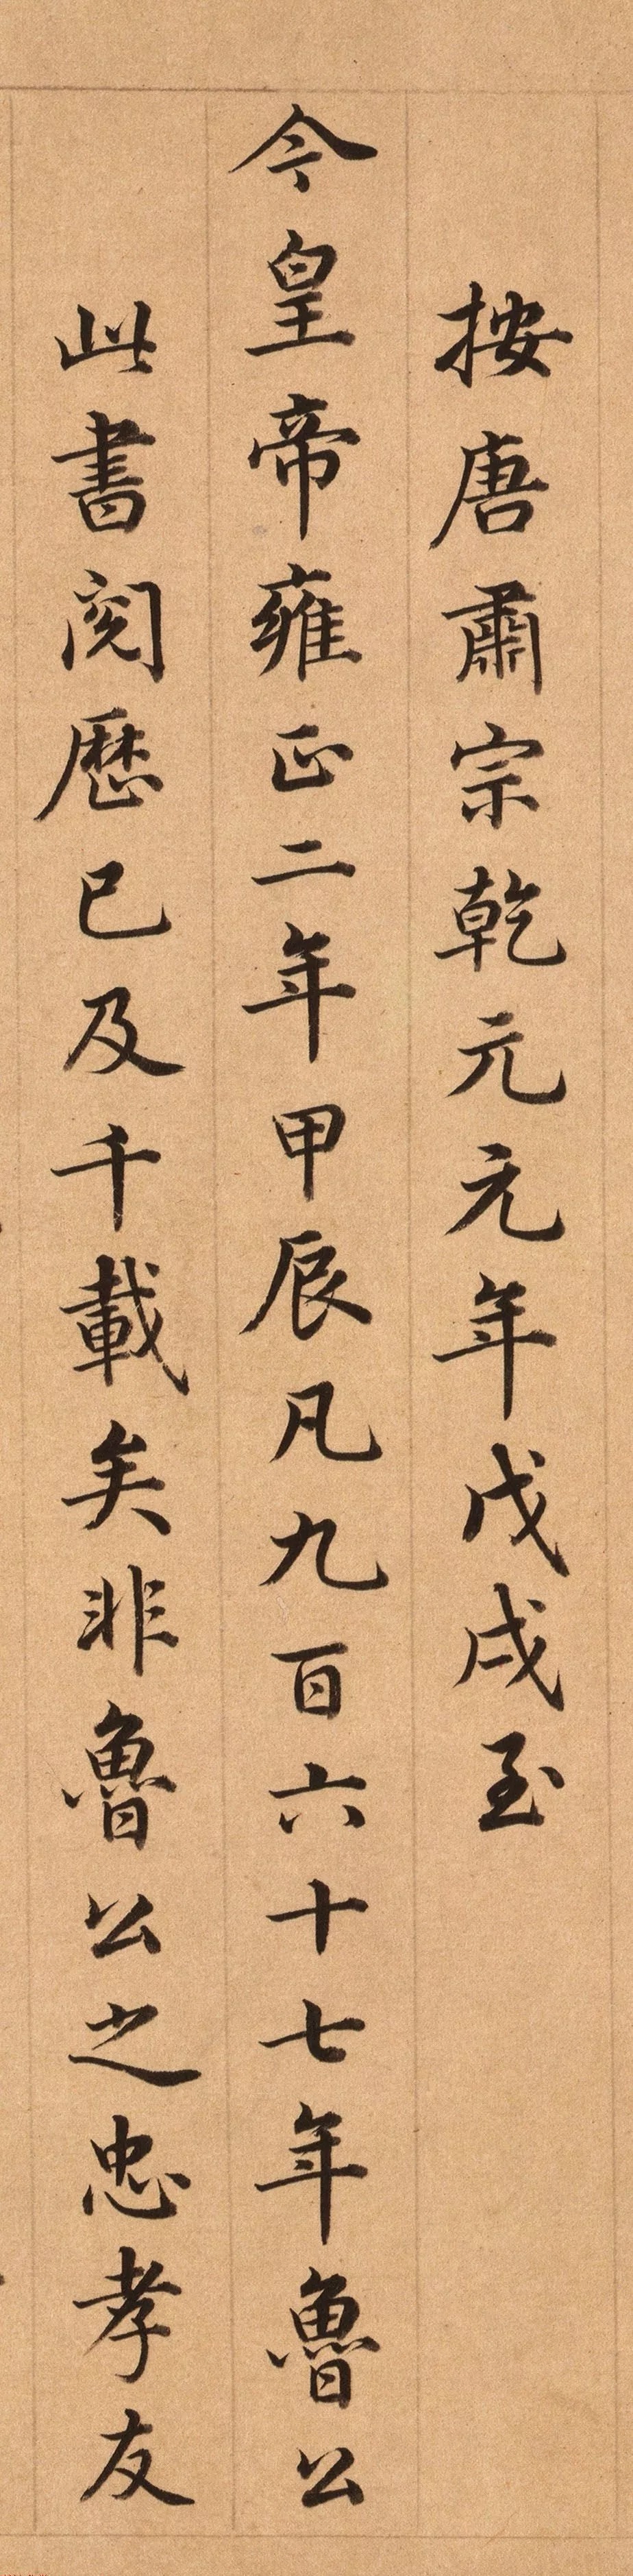 按唐肅宗乾元元年戊戌至
今皇帝雍正二年甲辰凡九百六十七年魯公
此書閱歷已及千載矣非魯公之忠孝友